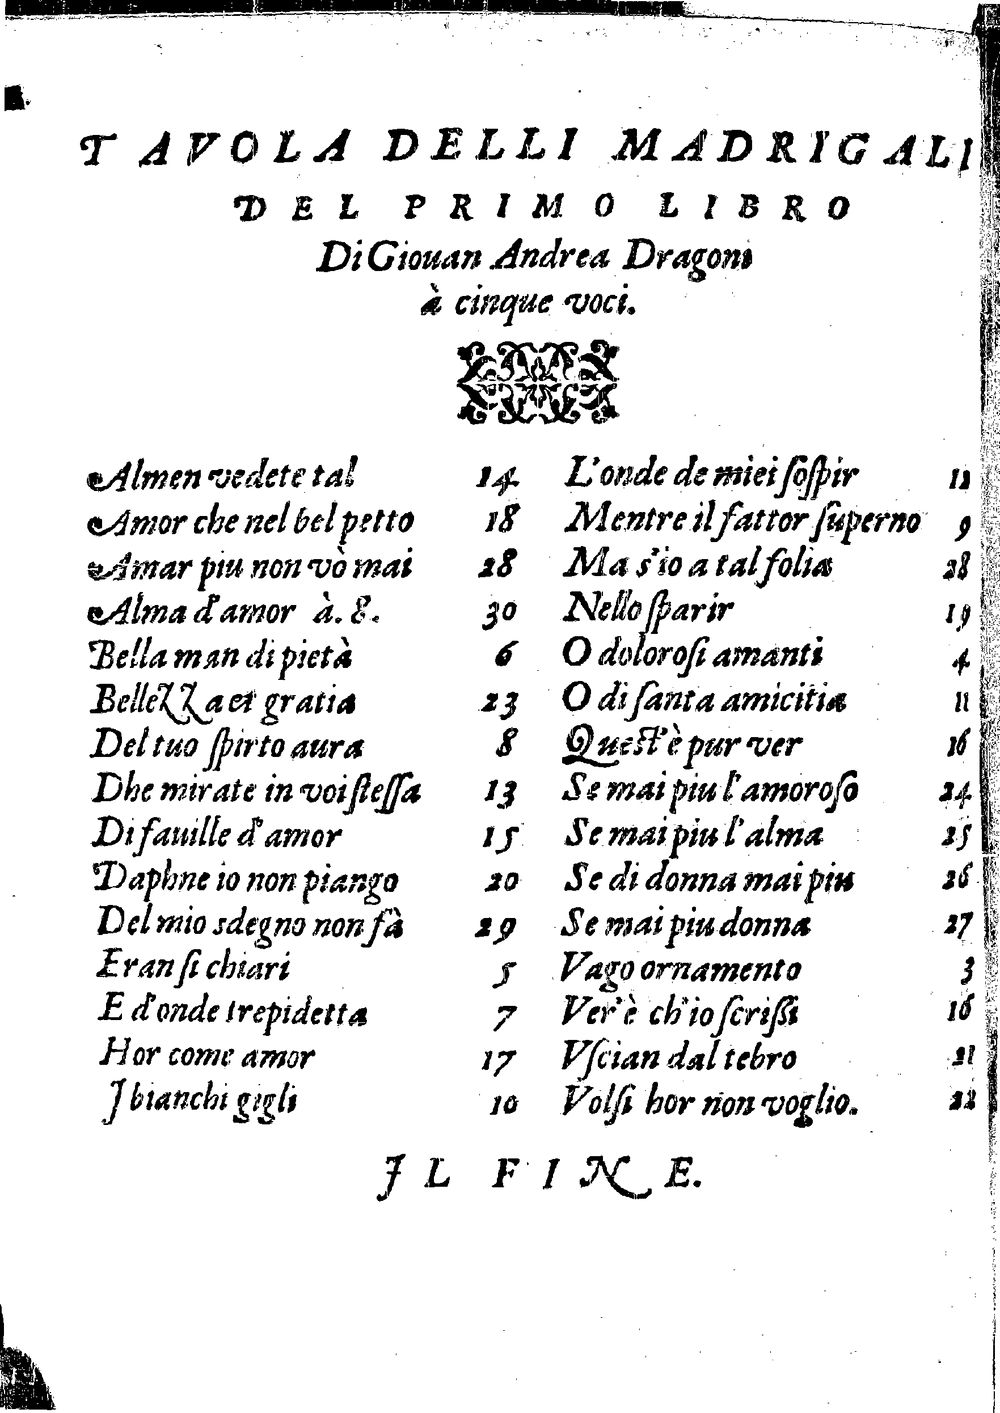 TAVOLA DELLI MADRIGALI
DEL PRIMO LIBRO
Di Giouan Andrea Dragoni
à cinque voci.
Almen vedete tal 14
Amor che nel bel petto 18
Amar piu non vò mai 28
Alma d'amor à. 8. 30
Bella man di pietà 6
Bellezza et gratia 23
Del tuo ſpirto aura 8
Dhe mirate in voi ſteſſa 13
Di fauille d'amor 15
Daphne io non piango 20
Del mio sdegno non fà 29
Eran ſi chiari 5
E d'onde trepidetta 7
Hor come amor 17
I bianchi gigli 10
L'onde de miei ſoſpir 12
Mentre il fattor ſuperno 9
Ma s'io a tal folia 28
Nello ſparir 19
O doloroſi amanti 4
O di ſanta amicitia 11
Queſt'è pur ver 16
Se mai piu l'amoroſo 24
Se mai piu l'alma 25
Se di donna mai piu 26
Se mai piu donna 27
Vago ornamento 3
Ver'è ch'io ſcriſſi 16
Vſcian dal tebro 21
Volſi hor non voglio. 22
IL FINE.